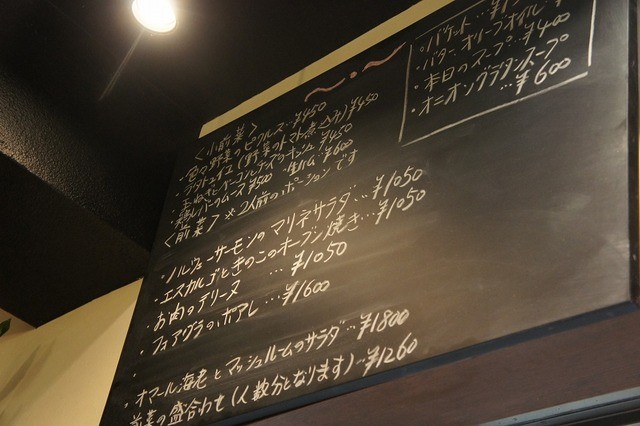 〈小前菜〉
・色々野菜のピクルス…¥450
ラタトゥイユ(野菜のトマト煮込み)¥450
玉ねぎとベーコンとチーズのキッシュ ¥450
鶏レバームース ¥500 生ハム ¥600
〈前菜〉※2人前のポーションです
・ノルウェーサーモンのマリネサラダ…¥1050
・エスカルゴときのこのオーブン焼き…¥1050
・お肉のテリーヌ …¥1050
・フォアグラのポアレ…¥1600
・
・オマール海老とマッシュルームのサラダ…¥1800
前菜の盛合わせ(人数分となります)…¥1260
・バケット…
・バター、オリーブオイル…
・本日のスープ…¥400
・オニオングラタンスープ
…¥600